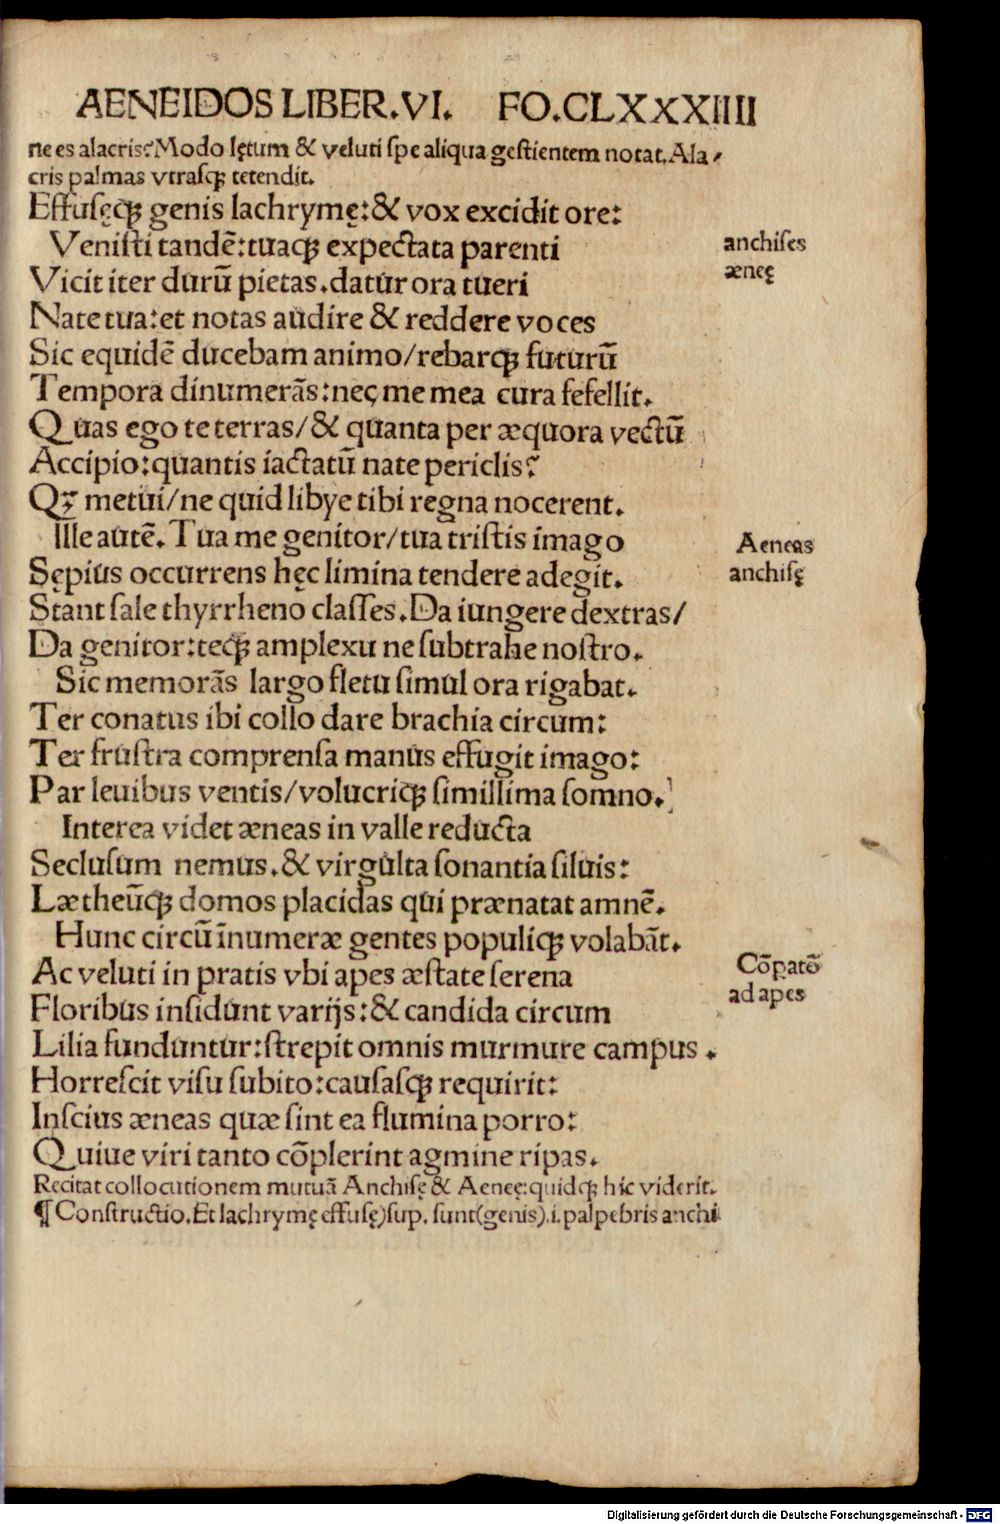 AENEIDOS LIBER.VI. FO.CLXXXIIII
ne es alacris? Modo lętum & veluti spe aliqua gestientem notat. Ala⸗
cris palmas vtrasqꝫ tetendit.
Effusęqꝫ genis lachrymę: & vox excidit ore:
Venisti tandē: tuaqꝫ expectata parenti
anchises
Vicit iter durū pietas. datur ora tueri
æneę
Nate tua: et notas audire & reddere voces
Sic equidē ducebam animo/rebarqꝫ futurū
Tempora dinumerās: neç me mea cura fefellit.
Quas ego te terras/& quanta per æquora vectū
Accipio: quantis iactatū nate periclis?
Qꝫ metui/ne quid libye tibi regna nocerent.
Ille autē. Tua me genitor/tua tristis imago
Aeneas
Sępius occurrens hęc limina tendere adegit.
anchisę
Stant sale thyrrheno classes. Da iungere dextras/
Da genitor: teqꝫ amplexu ne subtrahe nostro.
Sic memorās largo fletu simul ora rigabat.
Ter conatus ibi collo dare brachia circum:
Ter frustra comprensa manus effugit imago:
Par leuibus ventis/volucriqꝫ simillima somno.
Interea videt æneas in valle reducta
Seclusum nemus. & virgulta sonantia siluis:
Lætheūqꝫ domos placidas qui prænatat amnē.
Hunc circū īnumeræ gentes populiqꝫ volabāt.
Ac veluti in pratis vbi apes æstate serena
Cōpatō
Floribus insidunt varijs: & candida circum
ad apes
Lilia funduntur: strepit omnis murmure campus.
Horrescit visu subito: causasqꝫ requirit:
Inscius æneas quæ sint ea flumina porro:
Quiue viri tanto cōplerint agmine ripas.
Recitat collocutionem mutuā Anchisę & Aeneę: quidqꝫ hic viderit.
¶ Constructio. Et lachrymę effusę) sup. sunt (genis) .i. palpebris anchi
Digitalisierung gefördert durch die Deutsche Forschungsgemeinschaft - DFG